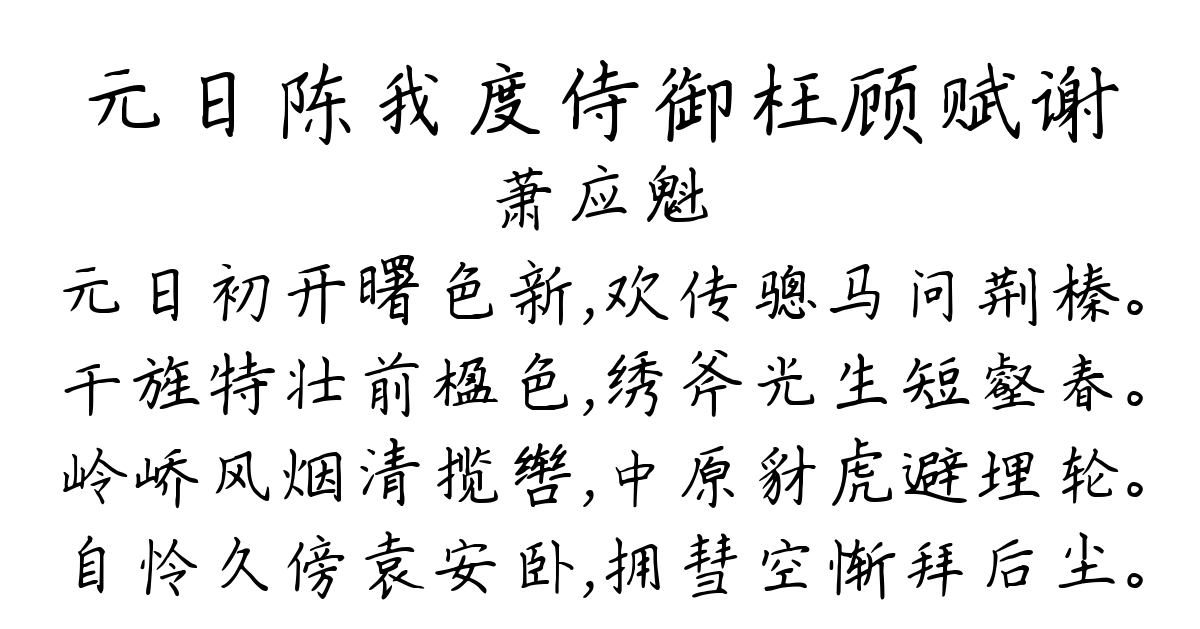 元日陈我度侍御枉顾赋谢
萧应魁
元日初开曙色新,欢传骢马问荆榛。
干旌特壮前楹色,绣斧光生短壑春。
岭峤风烟清揽辔,中原豺虎避埋轮。
自怜久傍袁安卧,拥彗空惭拜后尘。